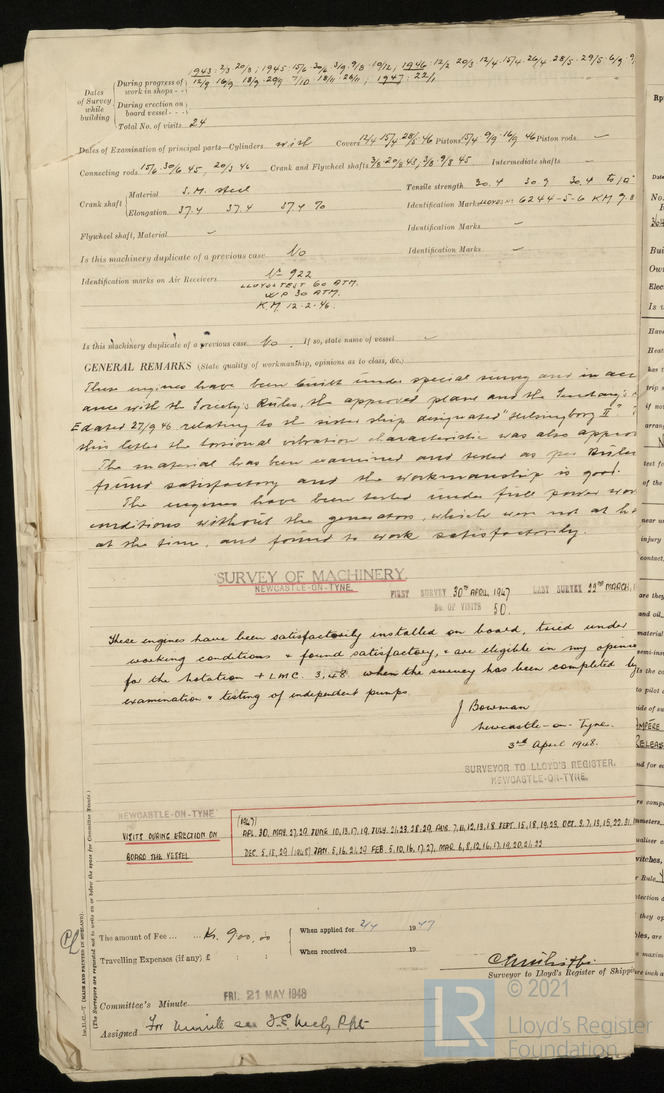 Dates of Survey while building
During progress of work in shops - - 1943 2/3 20/8; 1945 15/6 30/6 3/9 9/8 19/12, 1946 12/2 20/3 12/4 15/4 26/4 28/5 29/5 6/9 9
12/9 16/9 18/9 20/9 7/10 18/11 26/11; 1947: 22/1
During erection on board vessel - - -
Total No. of visits 24
Dates of Examination of principal parts—Cylinders with Covers 12/4 15/4 28/5 46 Pistons 15/4 9/9 16/9 46 Piston rods —
Connecting rods 15/6 30/6 45, 20/3 46 Crank and Flywheel shafts 3/8 20/8 43, 3/8 9/8 45 Intermediate shafts —
Crank shaft Material S. M. steel Tensile strength 30.4 30.9 30.4
Elongation 37.4 37.4 37.4 % Identification Mark LLOYDS No 6244-5-6 KM 9.8
Flywheel shaft, Material — Identification Marks —
Is this machinery duplicate of a previous case No Identification Marks —
Identification marks on Air Receivers No 922
LLOYDS TEST 60 ATM.
W P 30 ATM.
K.M. 12-2-46.
Is this machinery duplicate of a previous case No. If so, state name of vessel —
GENERAL REMARKS (State quality of workmanship, opinions as to class, &c.)
These engines have been built under special survey and in acc
ance with the Society's Rules, the approved plans and the Secretary's
E dated 27/9 46 relating to the sister ship designated "Helsingborg II"
this letter the torsional vibration characteristic was also approv
The material has been examined and tested as per Rules
found satisfactory and the workmanship is good.
The engines have been tested under full power wor
conditions without the generators, which were not at h
at the time, and found to work satisfactorily.
SURVEY OF MACHINERY
NEWCASTLE-ON-TYNE.
FIRST SURVEY 30TH APRIL 1947 LAST SURVEY 22ND MARCH, 1
No. OF VISITS 50.
These engines have been satisfactorily installed on board, tried under
working conditions & found satisfactory, & are eligible in my opinion
for the notation + LMC. 3,48. when the survey has been completed by
examination & testing of independent pumps.
J Bowman
Newcastle-on-Tyne.
3rd April 1948.
SURVEYOR TO LLOYD'S REGISTER.
NEWCASTLE-ON-TYNE.
NEWCASTLE-ON-TYNE
VISITS DURING ERECTION ON
BOARD THE VESSEL
(1947)
APL. 30, MAY. 27, 29 JUNE 10, 13, 17, 19, JULY. 21, 23, 28, 29, AUG. 7, 11, 12, 13, 18 SEPT. 15, 18, 19, 23, OCT. 3, 7, 13, 15, 22, 31,
DEC. 5, 15, 29 (1948) JAN. 5, 16, 21, 29 FEB. 5, 10, 16, 17, 27, MAR. 6, 8, 12, 16, 17, 19, 20, 21, 22
The amount of Fee ... ... Kr. 900,00 When applied for 2/4 1947
Travelling Expenses (if any) £ : : When received 19
Surveyor to Lloyd's Register of Shippi
Committee's Minute FRI. 21 MAY 1948
Assigned For minute see F.E. Mchy Rpt
(The Surveyors are requested not to write on or below the space for Committee Minute.)
(MADE AND PRINTED IN ENGLAND).
LR
© 2021
Lloyd's Register
Foundation